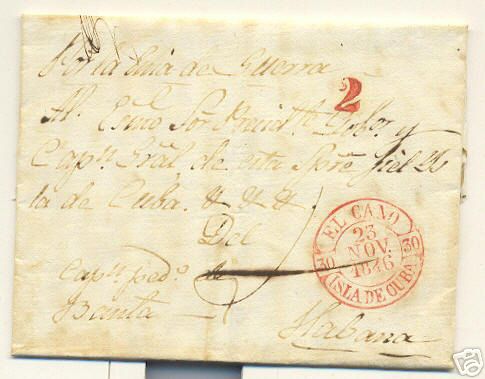 Por la Via de Guerra
2
Al Exmo Sor Presidte Gobor y
Capn Gral de esta Spre fiel Ys
la de Cuba. & & &.
Del
Capn pedo de
Banta
Habana
EL CANO
23
NOV.
1846
30 30
ISLA DE CUBA